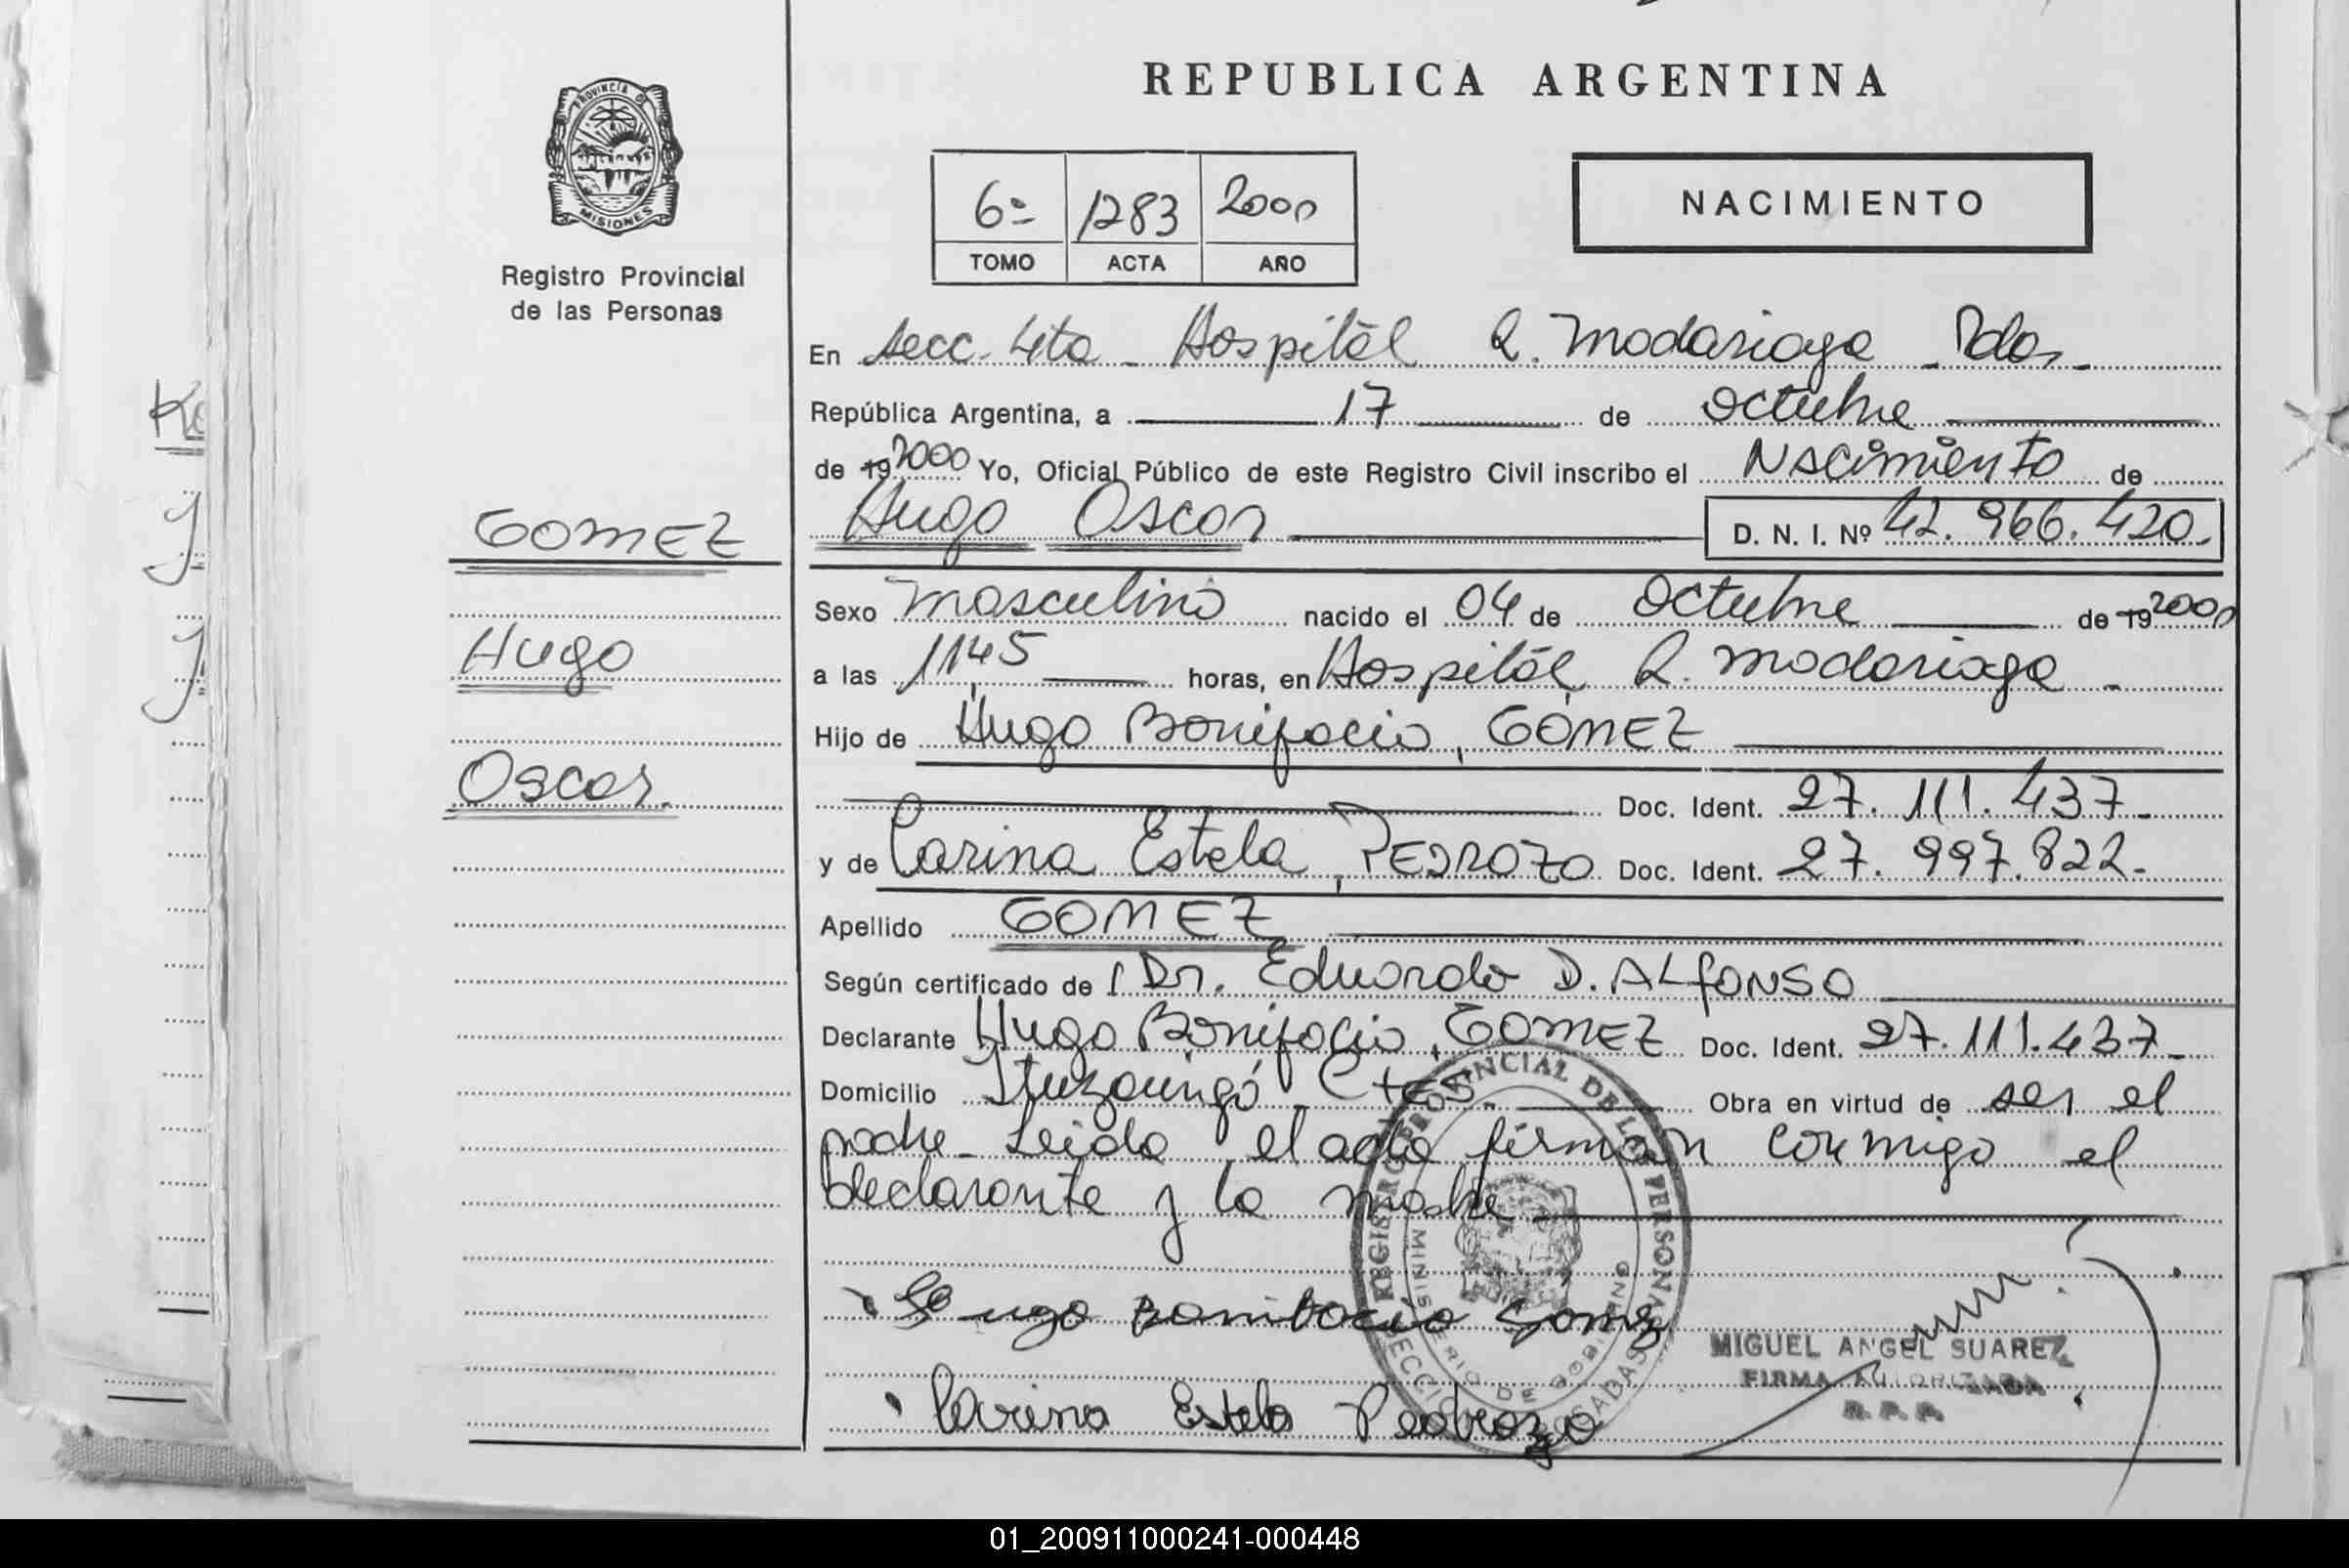 REPUBLICA ARGENTINA
PROVINCIA DE
MISIONES
Registro Provincial
de las Personas
6º 1283 2000
TOMO ACTA AÑO
NACIMIENTO
En secc. 4ta - Hospital R. Madariaga - Pdas.
República Argentina, a 17 de octubre
de 19 2000 Yo, Oficial Público de este Registro Civil inscribo el Nacimiento de
Hugo Oscar D. N. I. Nº 42.966.420.
GOMEZ
Hugo
Oscar.
Sexo masculino nacido el 04 de octubre de 19 2000
a las 11,45 horas, en Hospital R. Madariaga -
Hijo de Hugo Bonifacio, GOMEZ
Doc. Ident. 27.111.437-
y de Carina Estela, PEDROZO Doc. Ident. 27.997.822-
Apellido GOMEZ
Según certificado de l Dr. Eduardo D. ALFONSO
Declarante Hugo Bonifacio, GOMEZ Doc. Ident. 27.111.437-
Domicilio Ituzaingó Ctes. Obra en virtud de ser el
padre - Leida el acta firman conmigo el
declarante y la madre
Hugo Bonifacio Gomez
Carina Estela Pedrozo
REGISTRO PROVINCIAL DE LAS PERSONAS
MINISTERIO DE GOBIERNO
MIGUEL ANGEL SUAREZ
FIRMA AUTORIZADA
R. P. P.
01_200911000241-000448